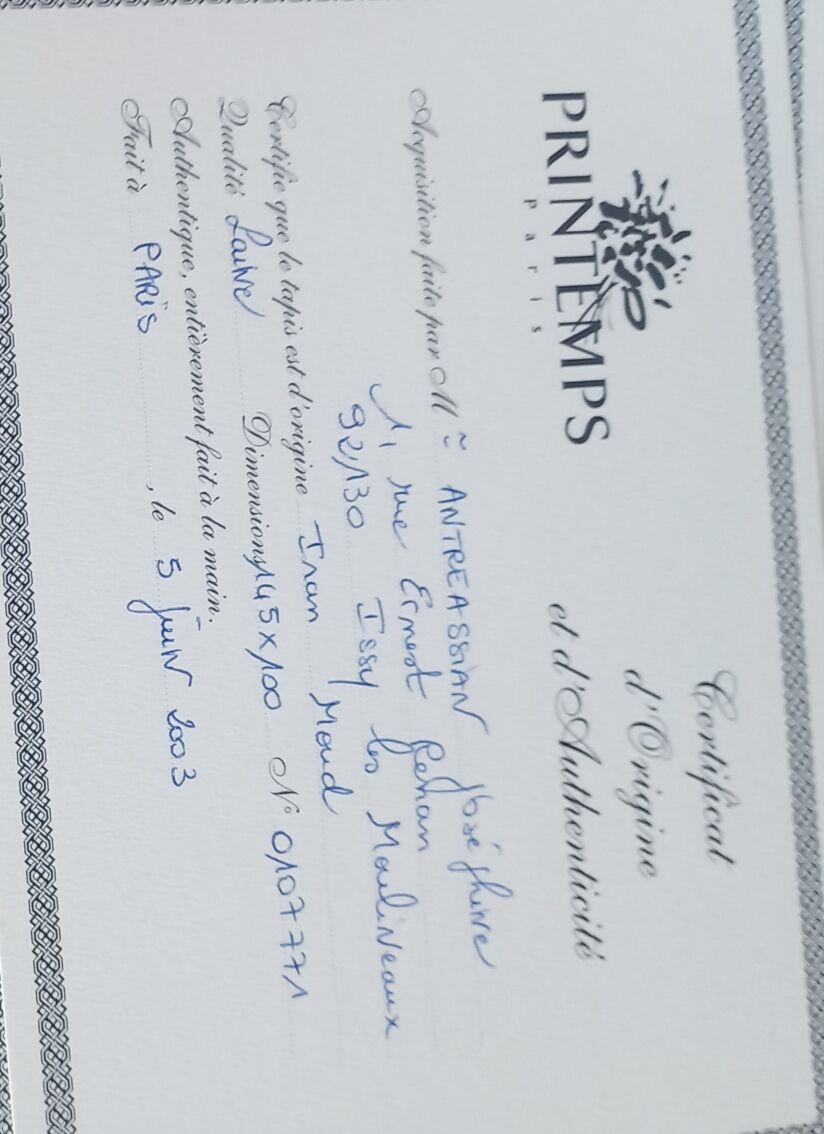 Certificat
d'Origine
et d'Authenticité
PRINTEMPS
Paris
Acquisition faite par M ANTREASSIAN Joséphine
11 rue Ernest Renan
92130 Issy les Moulineaux
Certifie que le tapis est d'origine Iran Moud
Qualité Laine Dimensions 145 x 100 N° 0107771
Authentique, entièrement fait à la main.
Fait à PARIS, le 5 Juin 2003